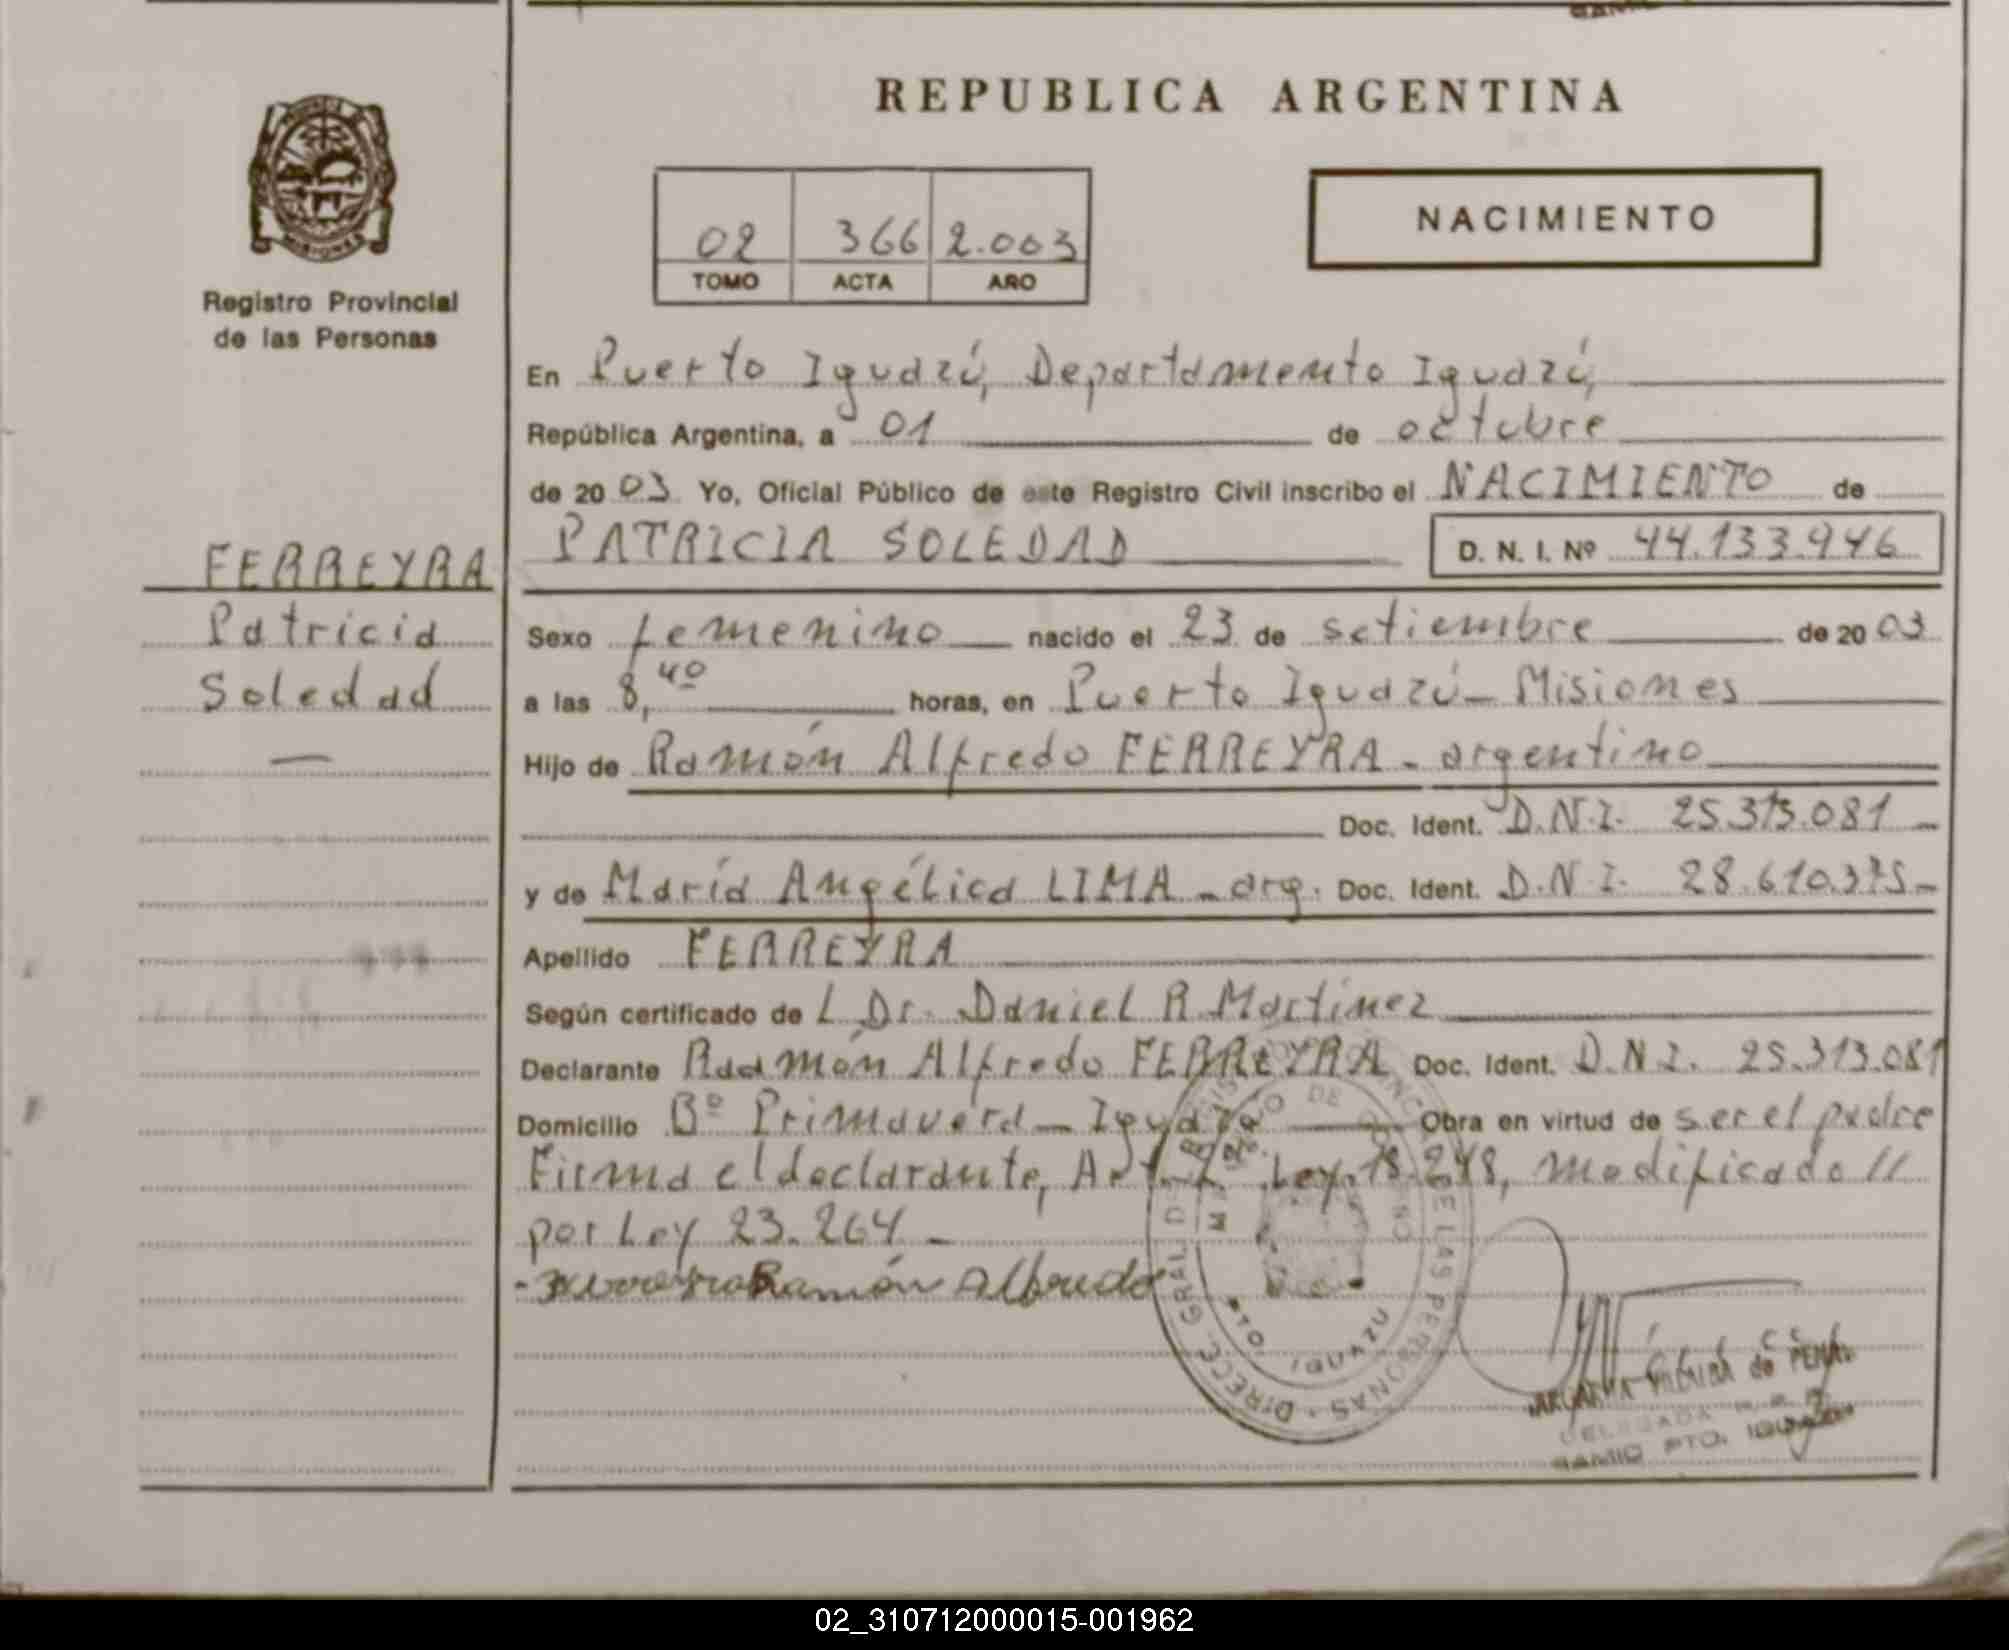 REPUBLICA ARGENTINA
02 366 2.003
TOMO ACTA AÑO
NACIMIENTO
MISIONES
Registro Provincial
de las Personas
FERREYRA
Patricia
Soledad
En Puerto Iguazú, Departamento Iguazú,
República Argentina, a 01 de octubre
de 20 03 Yo, Oficial Público de este Registro Civil inscribo el NACIMIENTO de
PATRICIA SOLEDAD D. N. I. Nº 44.133.946
Sexo femenino nacido el 23 de setiembre de 20 03
a las 8,40 horas, en Puerto Iguazú - Misiones
Hijo de Ramón Alfredo FERREYRA - argentino
Doc. Ident. D.N.I. 25.313.081 -
y de María Angélica LIMA - arg. Doc. Ident. D.N.I. 28.610.375 -
Apellido FERREYRA
Según certificado de L Dr. Daniel R. Martínez
Declarante Raamón Alfredo FERREYRA Doc. Ident. D.N.I. 25.313.081
Domicilio Bº Primavera - Iguazú Obra en virtud de ser el padre
Firma el declarante, Art. Ley 18.248, modificado //
por Ley 23.264 -
- Ferreyra Ramón Alfredo
DIRECC. GRAL. DEL REGISTRO PROVINCIAL DE LAS PERSONAS
MINISTERIO DE GOBIERNO
PTO. IGUAZU
de PEÑA
DELEGADA
SAMIC PTO. IGUAZU
02_310712000015-001962